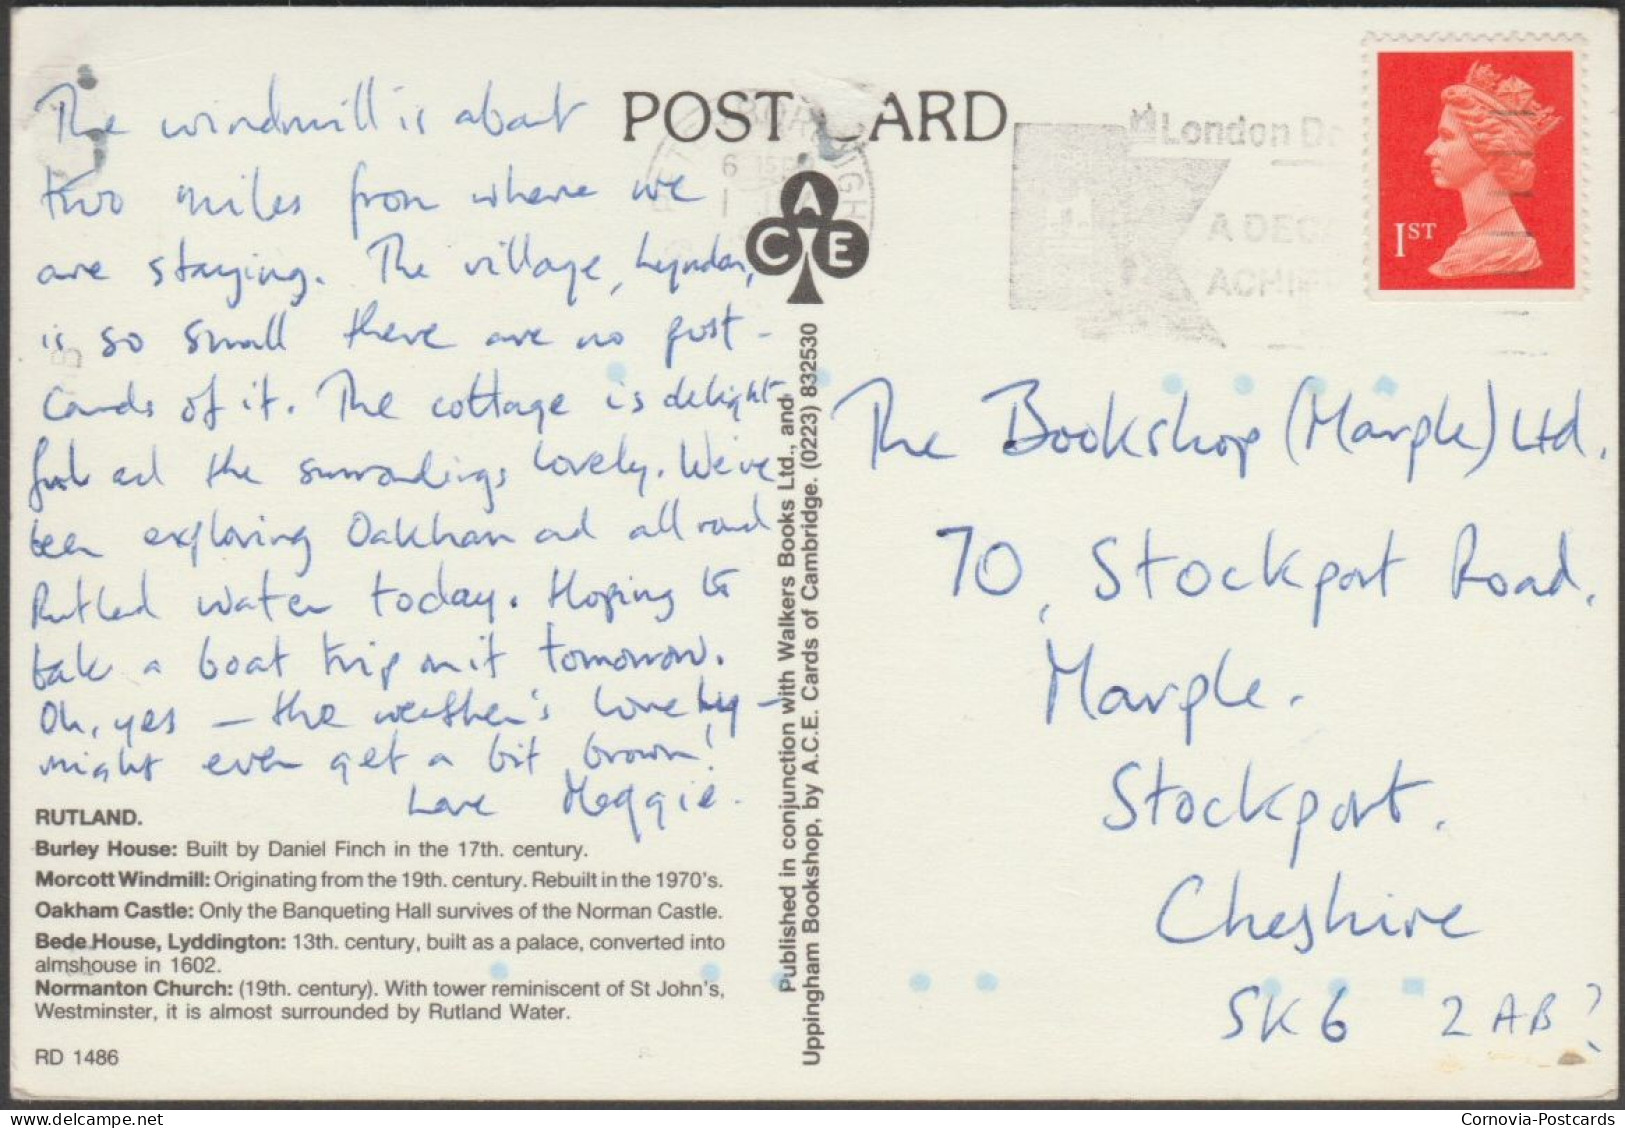 The windmill is about
two miles from where we
are staying. The village, Lyndon,
is so small there are no post-
cards of it. The cottage is delight
ful and the surroundings lovely. We've
been exploring Oakham and all round
Rutland water today. Hoping to
take a boat trip on it tomorrow.
Oh, yes – the weather's lovely –
might even get a bit brown!
Love Meggie.
RUTLAND.
Burley House: Built by Daniel Finch in the 17th. century.
Morcott Windmill: Originating from the 19th. century. Rebuilt in the 1970's.
Oakham Castle: Only the Banqueting Hall survives of the Norman Castle.
Bede House, Lyddington: 13th. century, built as a palace, converted into
almshouse in 1602.
Normanton Church: (19th. century). With tower reminiscent of St John's,
Westminster, it is almost surrounded by Rutland Water.
RD 1486
POST CARD
ACE
Published in conjunction with Walkers Books Ltd., and
Uppingham Bookshop, by A.C.E. Cards of Cambridge. (0223) 832530
London Do
A DECA
ACHIE
1ST
The Bookshop (Marple) Ltd.
70, Stockport Road,
Marple.
Stockport.
Cheshire
SK6 2AB?
Cornovia-Postcards